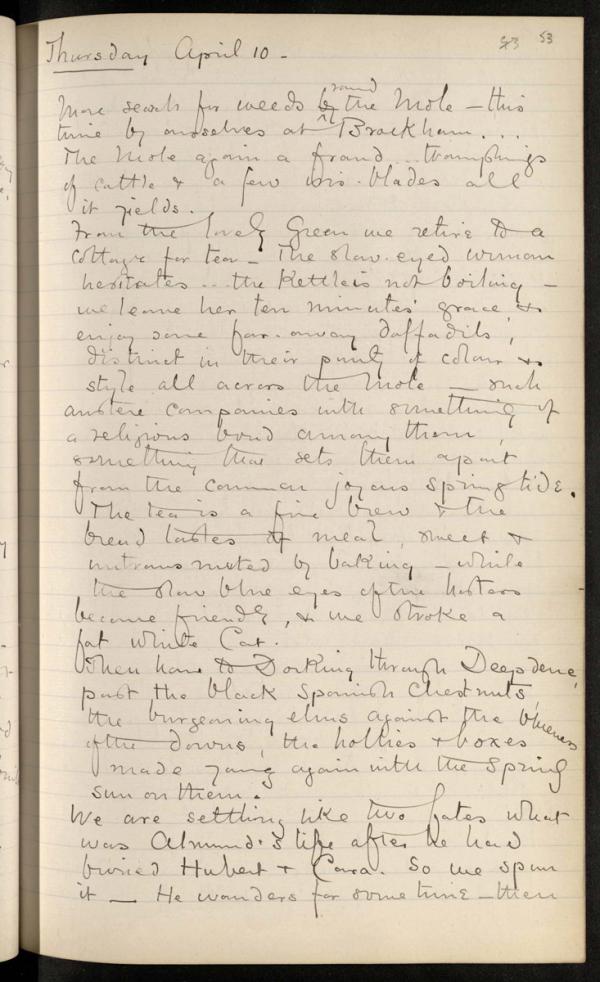 Thursday April 10 –
53 53
More search for weeds by round the Mole – this
time by ourselves at Brockham. . .
The Mole again a fraud . . . tramplings
of cattle & a few iris-blades all
it yields.
From the lovely Green we retire to a
Cottage for tea – The slow-eyed woman
hesitates . . . the Kettle is not boiling –
we leave her ten minutes' grace, &
enjoy some far-away daffodils,
distinct in their purity of colour &
style all across the Mole – such
austere companies with something of
a religious bond among them,
something that sets them apart
from the common joyous Springtide.
The tea is a fine brew & the
bread tastes of meal, sweet &
untransmuted by baking – while
the slow blue eyes of the hostess
become friendly, & we stroke a
fat white Cat.
Then home to Dorking through Deepdene,
past the black Spanish Chestnuts,
the burgeoning elms against the blueness
of the downs, the hollies & boxes
made young again with the Spring
sun on them.
We are settling like two fates what
was Almund's life after he had
buried Hubert & Cara. So we spun
it – He wanders for some time – then